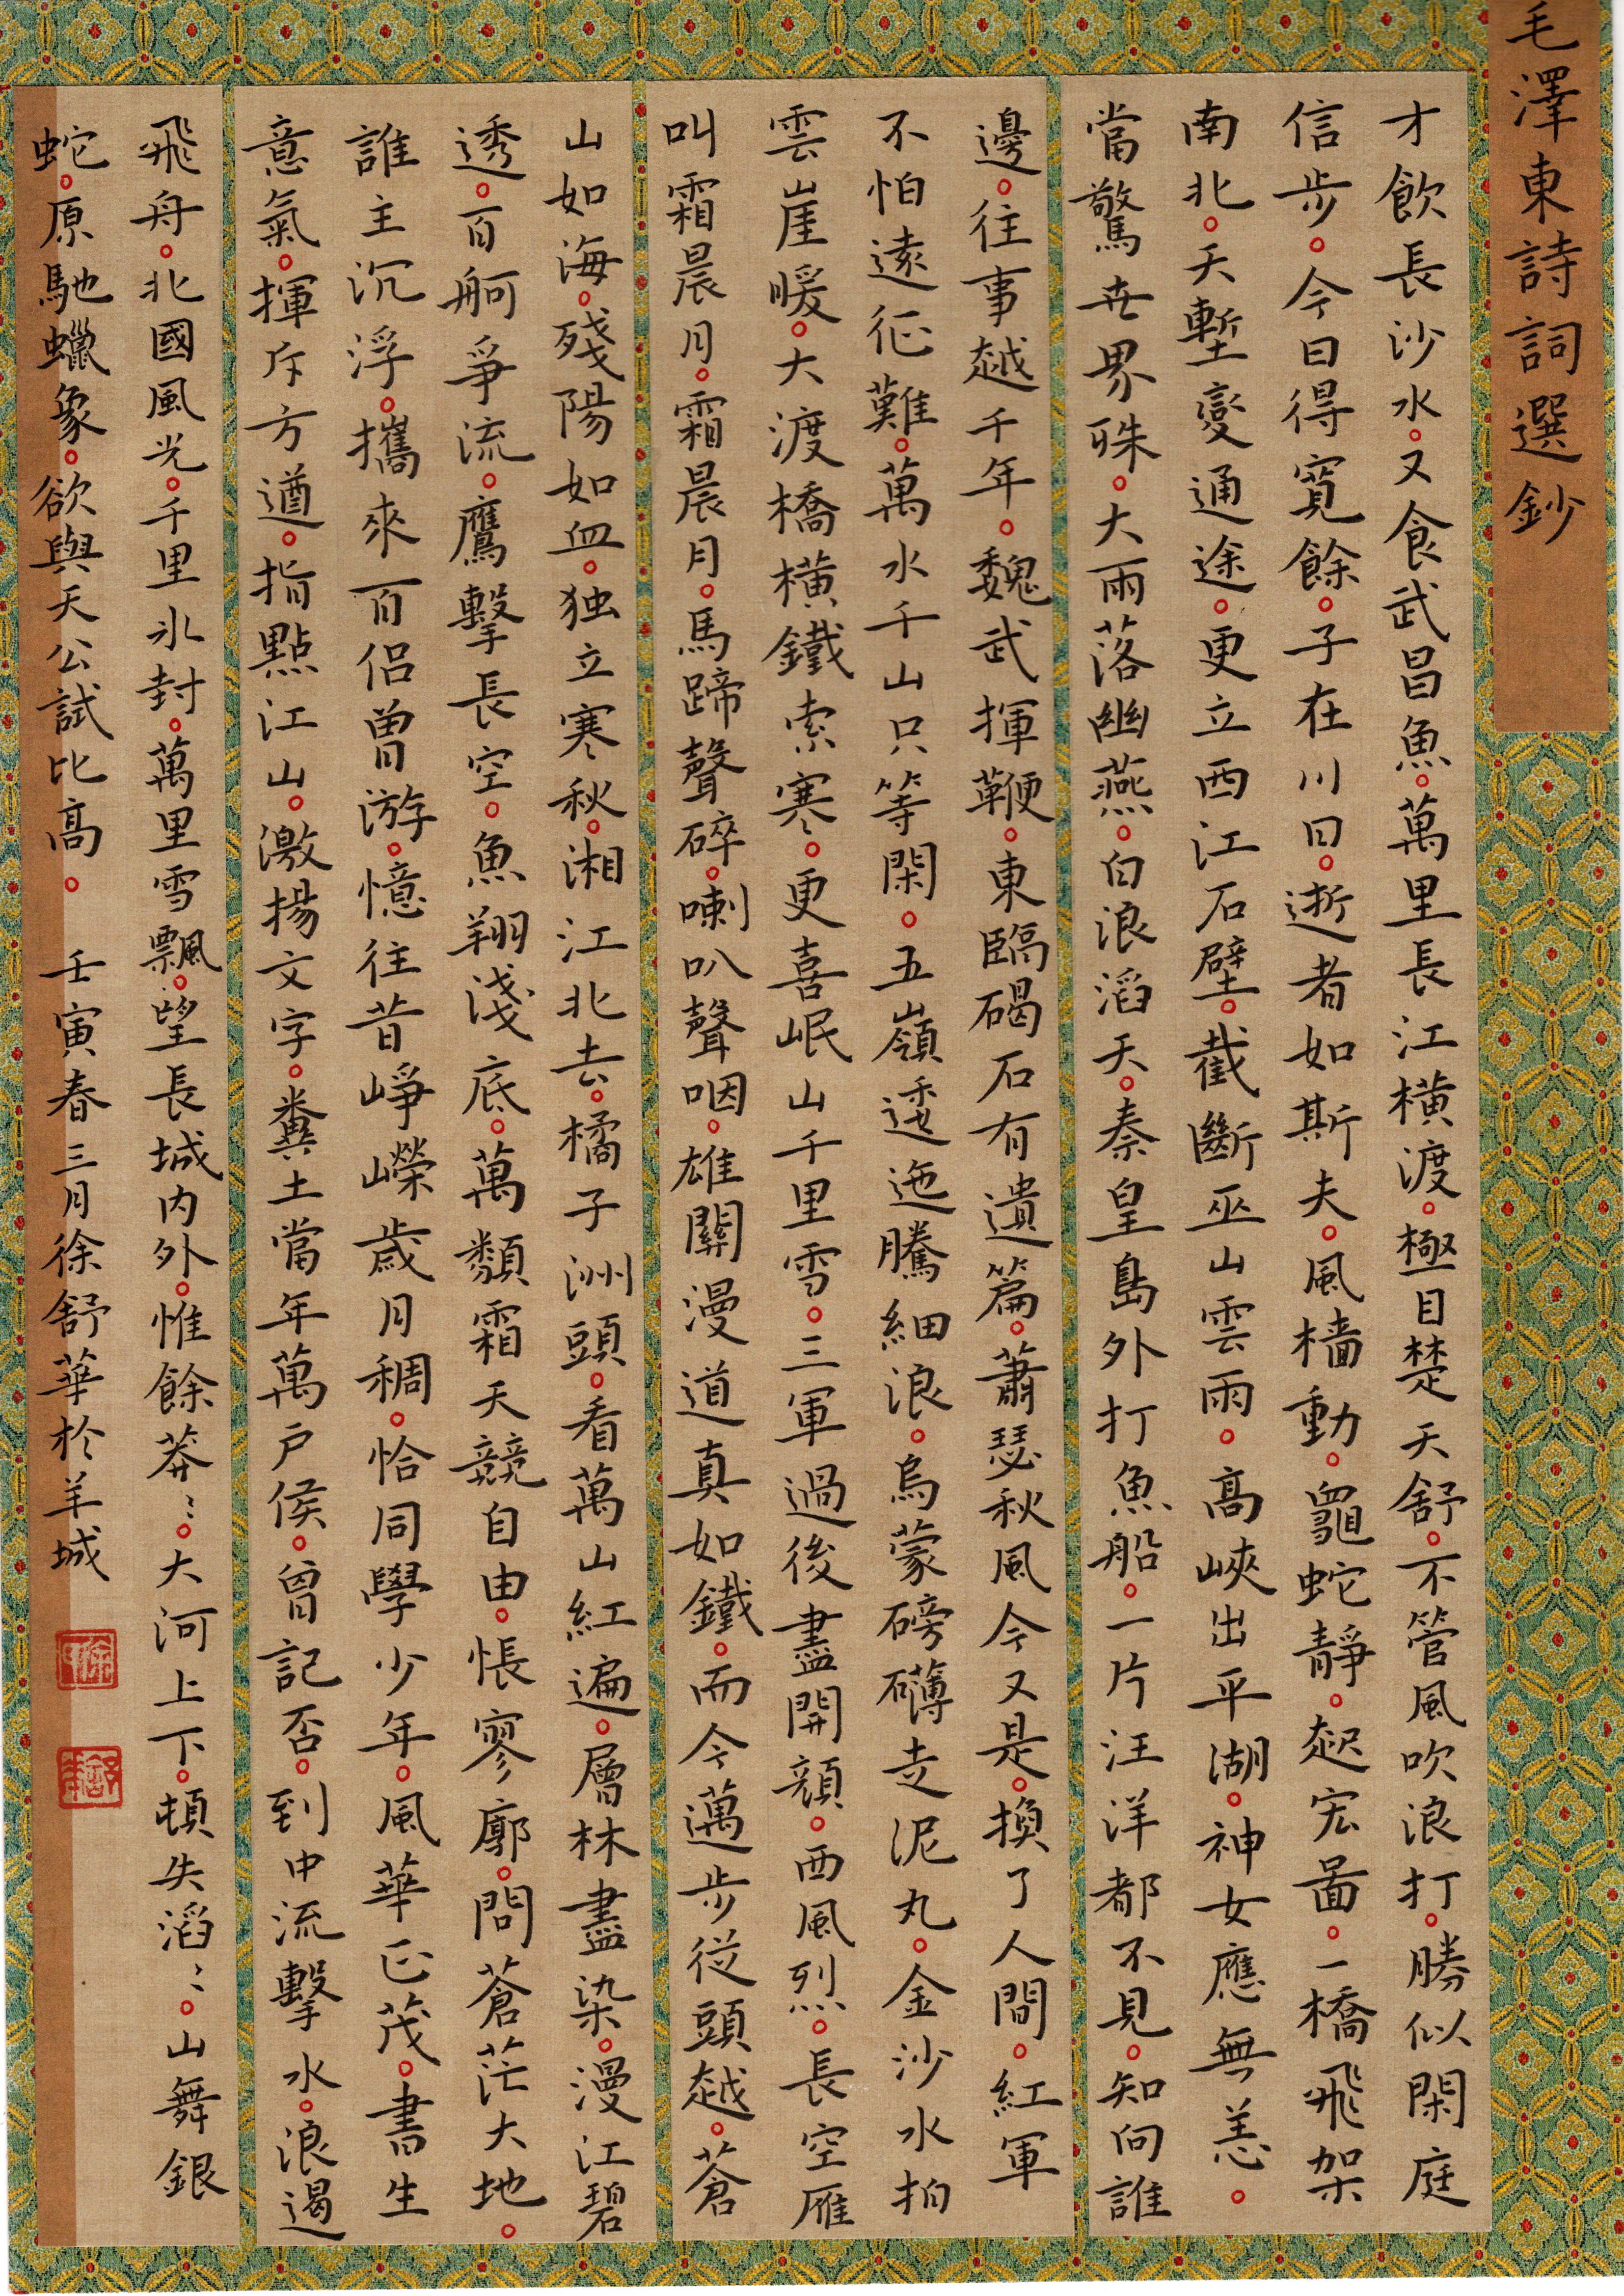 毛澤東詩詞選鈔
才飲長沙水。又食武昌魚。萬里長江橫渡。極目楚天舒。不管風吹浪打。勝似閑庭
信步。今日得寬餘。子在川曰。逝者如斯夫。風檣動。龜蛇靜。起宏啚。一橋飛架
南北。天塹變通途。更立西江石壁。截斷巫山雲雨。高峽出平湖。神女應無恙。
當驚世界殊。大雨落幽燕。白浪滔天。秦皇島外打魚船。一片汪洋都不見。知向誰
邊。往事越千年。魏武揮鞭。東臨碣石有遺篇。蕭瑟秋風今又是。換了人間。紅軍
不怕遠征難。萬水千山只等閑。五嶺逶迤騰細浪。烏蒙磅礴走泥丸。金沙水拍
雲崖暖。大渡橋橫鐵索寒。更喜岷山千里雪。三軍過後盡開顏。西風烈。長空雁
叫霜晨月。霜晨月。馬蹄聲碎。喇叭聲咽。雄關漫道真如鐵。而今邁步從頭越。蒼
山如海。殘陽如血。独立寒秋。湘江北去。橘子洲頭。看萬山紅遍。層林盡染。漫江碧
透。百舸爭流。鷹擊長空。魚翔淺底。萬類霜天競自由。悵寥廓。問蒼茫大地。
誰主沉浮。攜來百侶曾游。憶往昔崢嶸歲月稠。恰同學少年。風華正茂。書生
意氣。揮斥方遒。指點江山。激揚文字。糞土當年萬戶侯。曾記否。到中流擊水。浪遏
飛舟。北國風光。千里冰封。萬里雪飄。望長城內外。惟餘莽〻。大河上下。頓失滔〻。山舞銀
蛇。原馳蠟象。欲與天公試比高。 壬寅春三月徐舒華於羊城